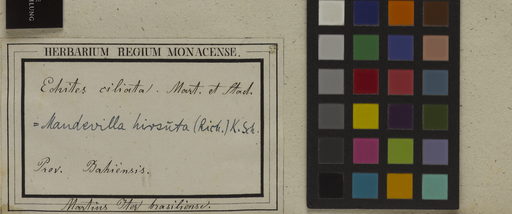 LUNG
HERBARIUM REGIUM MONACENSE.
Echites ciliata. Mart. et Stad.
= Mandevilla hirsuta (Rich.) K. Sch.
Prov. Bahiensis.
Martius Iter brasiliense.